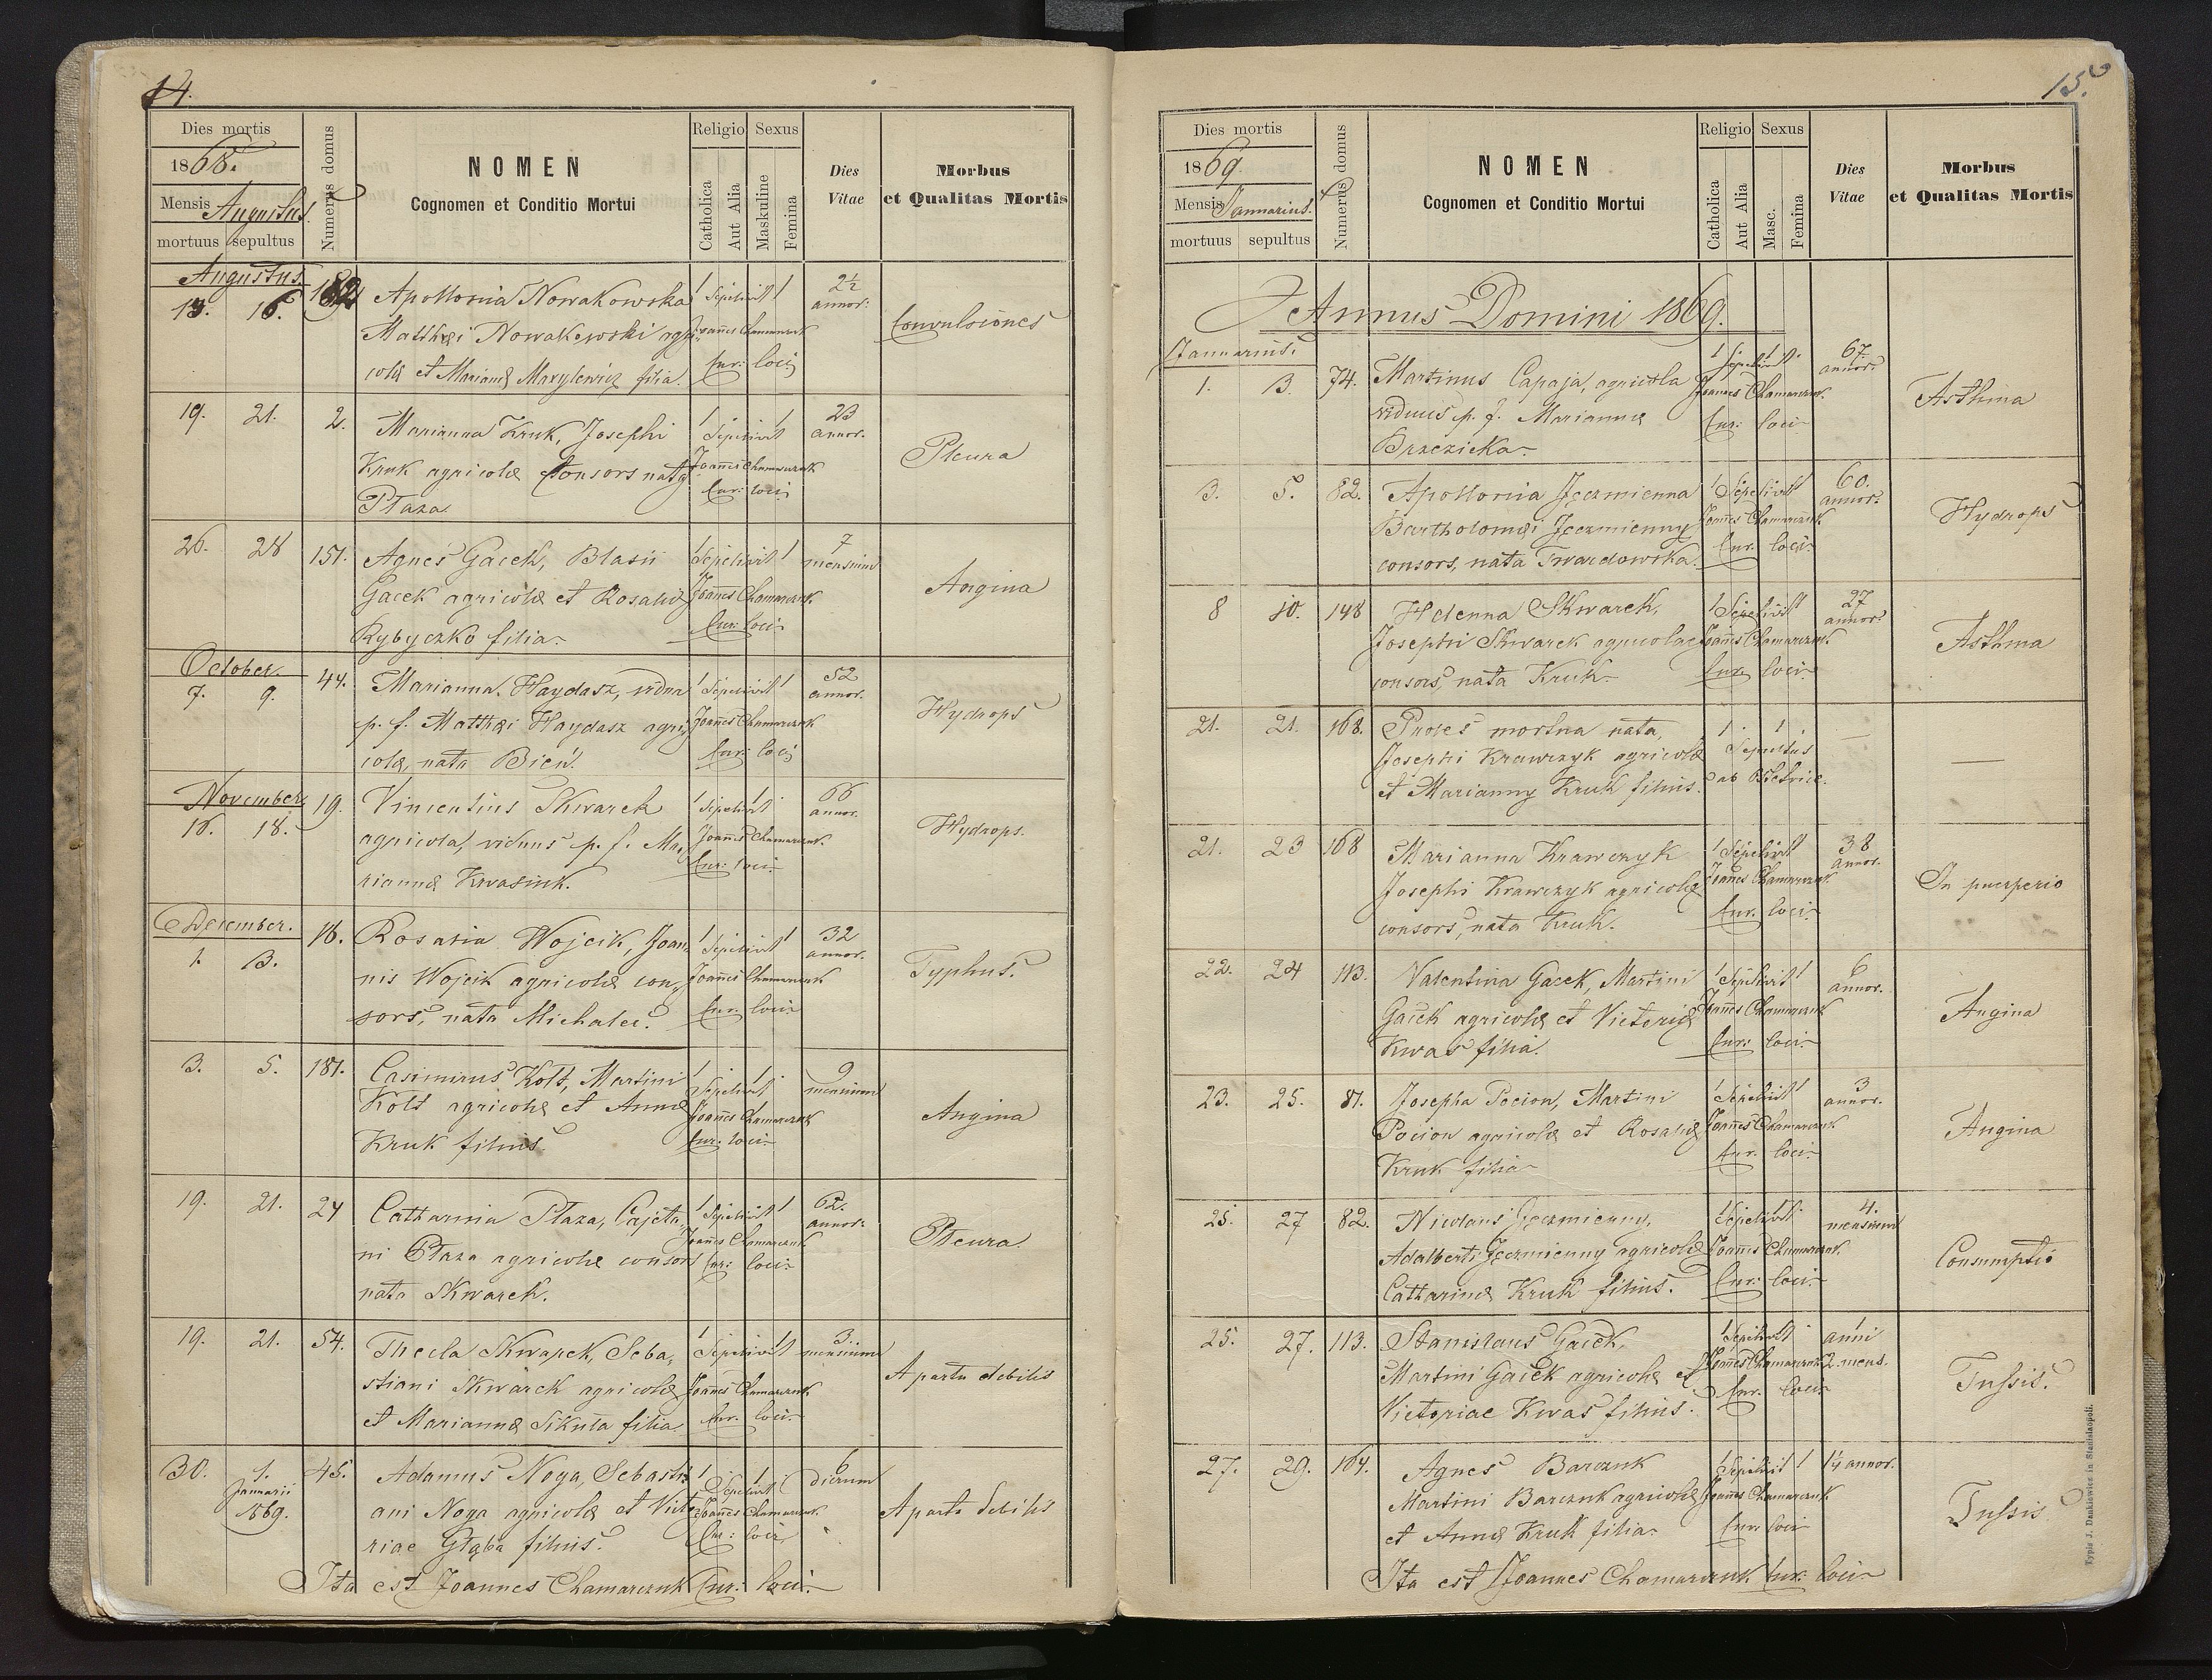 14.
Dies mortis
1868.
Mensis Augustus.
mortuus sepultus
Numerus domus
NOMEN
Cognomen et Conditio Mortui
Religio
Catholica
Aut Alia
Sexus
Maskuline
Femina
Dies
Vitae
Morbus
et Qualitas Mortis
Augustus
16. 182 Apollonia Nowakowska 1 Sepelivit 1 2½ annor:
Matthæi Nowakowski agri- Joañes Chamarczuk Convulsiones
colæ et Mariannæ Marylewicz filia. Cur: loci
19. 21. 2. Marianna Kruk, Josephi 1 Sepelivit 1 23 annor.
Kruk agricolæ Consors nata Joañes Chamarczuk Pleura
Płaza Cur: loci
26. 28 151. Agnes Gacek, Blasii 1 Sepelivit 1 7 mensium
Gacek agricolæ et Rosaliæ Joañes Chamarczuk Angina
Rybyczko filia Cur: loci
October.
7. 9. 44. Marianna Haydasz, vidua 1 Sepelivit 1 52 annor.
p. f. Matthæi Haydasz agri- Joañes Chamarczuk Hydrops
colæ, nata Bień. Cur: loci
November
16. 18. 19. Vincentius Skwarek 1 Sepelivit 1 66 annor.
agricola, viduus p. f. Ma- Joañes Chamarczuk. Hydrops.
riannæ Kwasiuk. Cur: loci
December.
1. 3. 16. Rosaria Wojcik, Joan- 1 Sepelivit 1 32 annor.
nis Wojcik agricolæ con- Joañes Chamarczuk Typhus.
sors, nata Michalec. Cur: loci
3. 5. 181. Casimirus Kołt, Martini 1 Sepelivit 1 9 mensium
Kołt agricolæ et Annæ Joañes Chamarczuk Angina
Kruk filius. Cur: loci
19. 21. 24 Catharina Płaza, Cajeta- 1 Sepelivit 1 62. annor.
ni Płaza agricolæ consors Joañes Chamarczuk Pleura.
nata Skwarek. Cur: loci
19. 21. 54. Thecla Skwarek, Seba- 1 Sepelivit 1 3. mensium
stiani Skwarek agricolæ Joañes Chamarczuk A partu debilis
et Mariannæ Sikuła filia Cur. loci
30. 1. Januarii 1869. 45. Adamus Noga, Sebasti- 1 Sepelivit 1 6 dierum
ani Noga agricolæ et Victo- Joañes Chamarczuk. A partu debilis
riae Głąba filius. Cur: loci
Ita est Joannes Chamarczuk Cur: loci
15.
Dies mortis
1869.
Mensis Januarius.
mortuus sepultus
Numerus domus
NOMEN
Cognomen et Conditio Mortui
Religio
Catholica
Aut Alia
Sexus
Masc.
Femina
Dies
Vitae
Morbus
et Qualitas Mortis
Annus Domini 1869.
Januarius.
1. 3. 74. Martinus Capaja, agricola 1 Sepelivit 1 67. annor.
viduus p. f. Mariannæ Joannes Chamarczuk. Asthma
Brzezicka Cur: loci
3. 5. 82. Apollonia Jęczmienna 1 Sepelivit 1 60. annor.
Bartholomæi Jęczmienny Joañes Chamarczuk. Hydrops
consors, nata Twardowska. Cur. loci
8 10. 148 Helenna Skwarek, 1 Sepelivit 1 27 annor.
Josephi Skwarek agricolae Joañes Chamarczuk. Asthma
consors, nata Kruk Cur. loci
21. 21. 168. Proles mortua nata, 1 1 —
Josephi Krawczyk agricolæ Sepultus —
et Marianny Kruk filius. ab obstetrice.
21. 23 168 Marianna Krawczyk 1 Sepelivit 1 38 annor.
Josephi Krawczyk agricolæ Joañes Chamarczuk. In puerperio
consors, nata Kruk. Cur. loci
22. 24 113. Valentina Gacek, Martini 1 Sepelivit 1 6 annor.
Gacek agricolæ et Victoriæ Joañes Chamarczuk Angina
Kwas filia. Cur: loci
23. 25. 81. Josepha Pocion, Martini 1 Sepelivit 1 3 annor.
Pocion agricolæ et Rosaliæ Joañes Chamarczuk Angina
Kruk filia Cur. loci
25. 27 82. Nicolaus Jęczmienny, 1 Sepelivit 1 4. mensium
Adalberti Jęczmienny agricolæ Joañes Chamarczuk. Consumptio
Catharinæ Kruk filius. Cur: loci
25. 27. 113. Stanislaus Gacek, 1 Sepelivit 1 1 anni
Martini Gacek agricolæ et Joañes Chamarczuk 2. mens. Tussis.
Victoriae Kwas filius. Cur. loci
27. 29. 164. Agnes Barczuk 1 Sepelivit 1 1¼ annor.
Martini Barczuk agricolæ Joañes Chamarczuk Tussis
et Annæ Kruk filia. Cur loci
Ita est Joannes Chamarczuk Cur: loci
Typis J. Dankiewicz in Stanislaopoli.